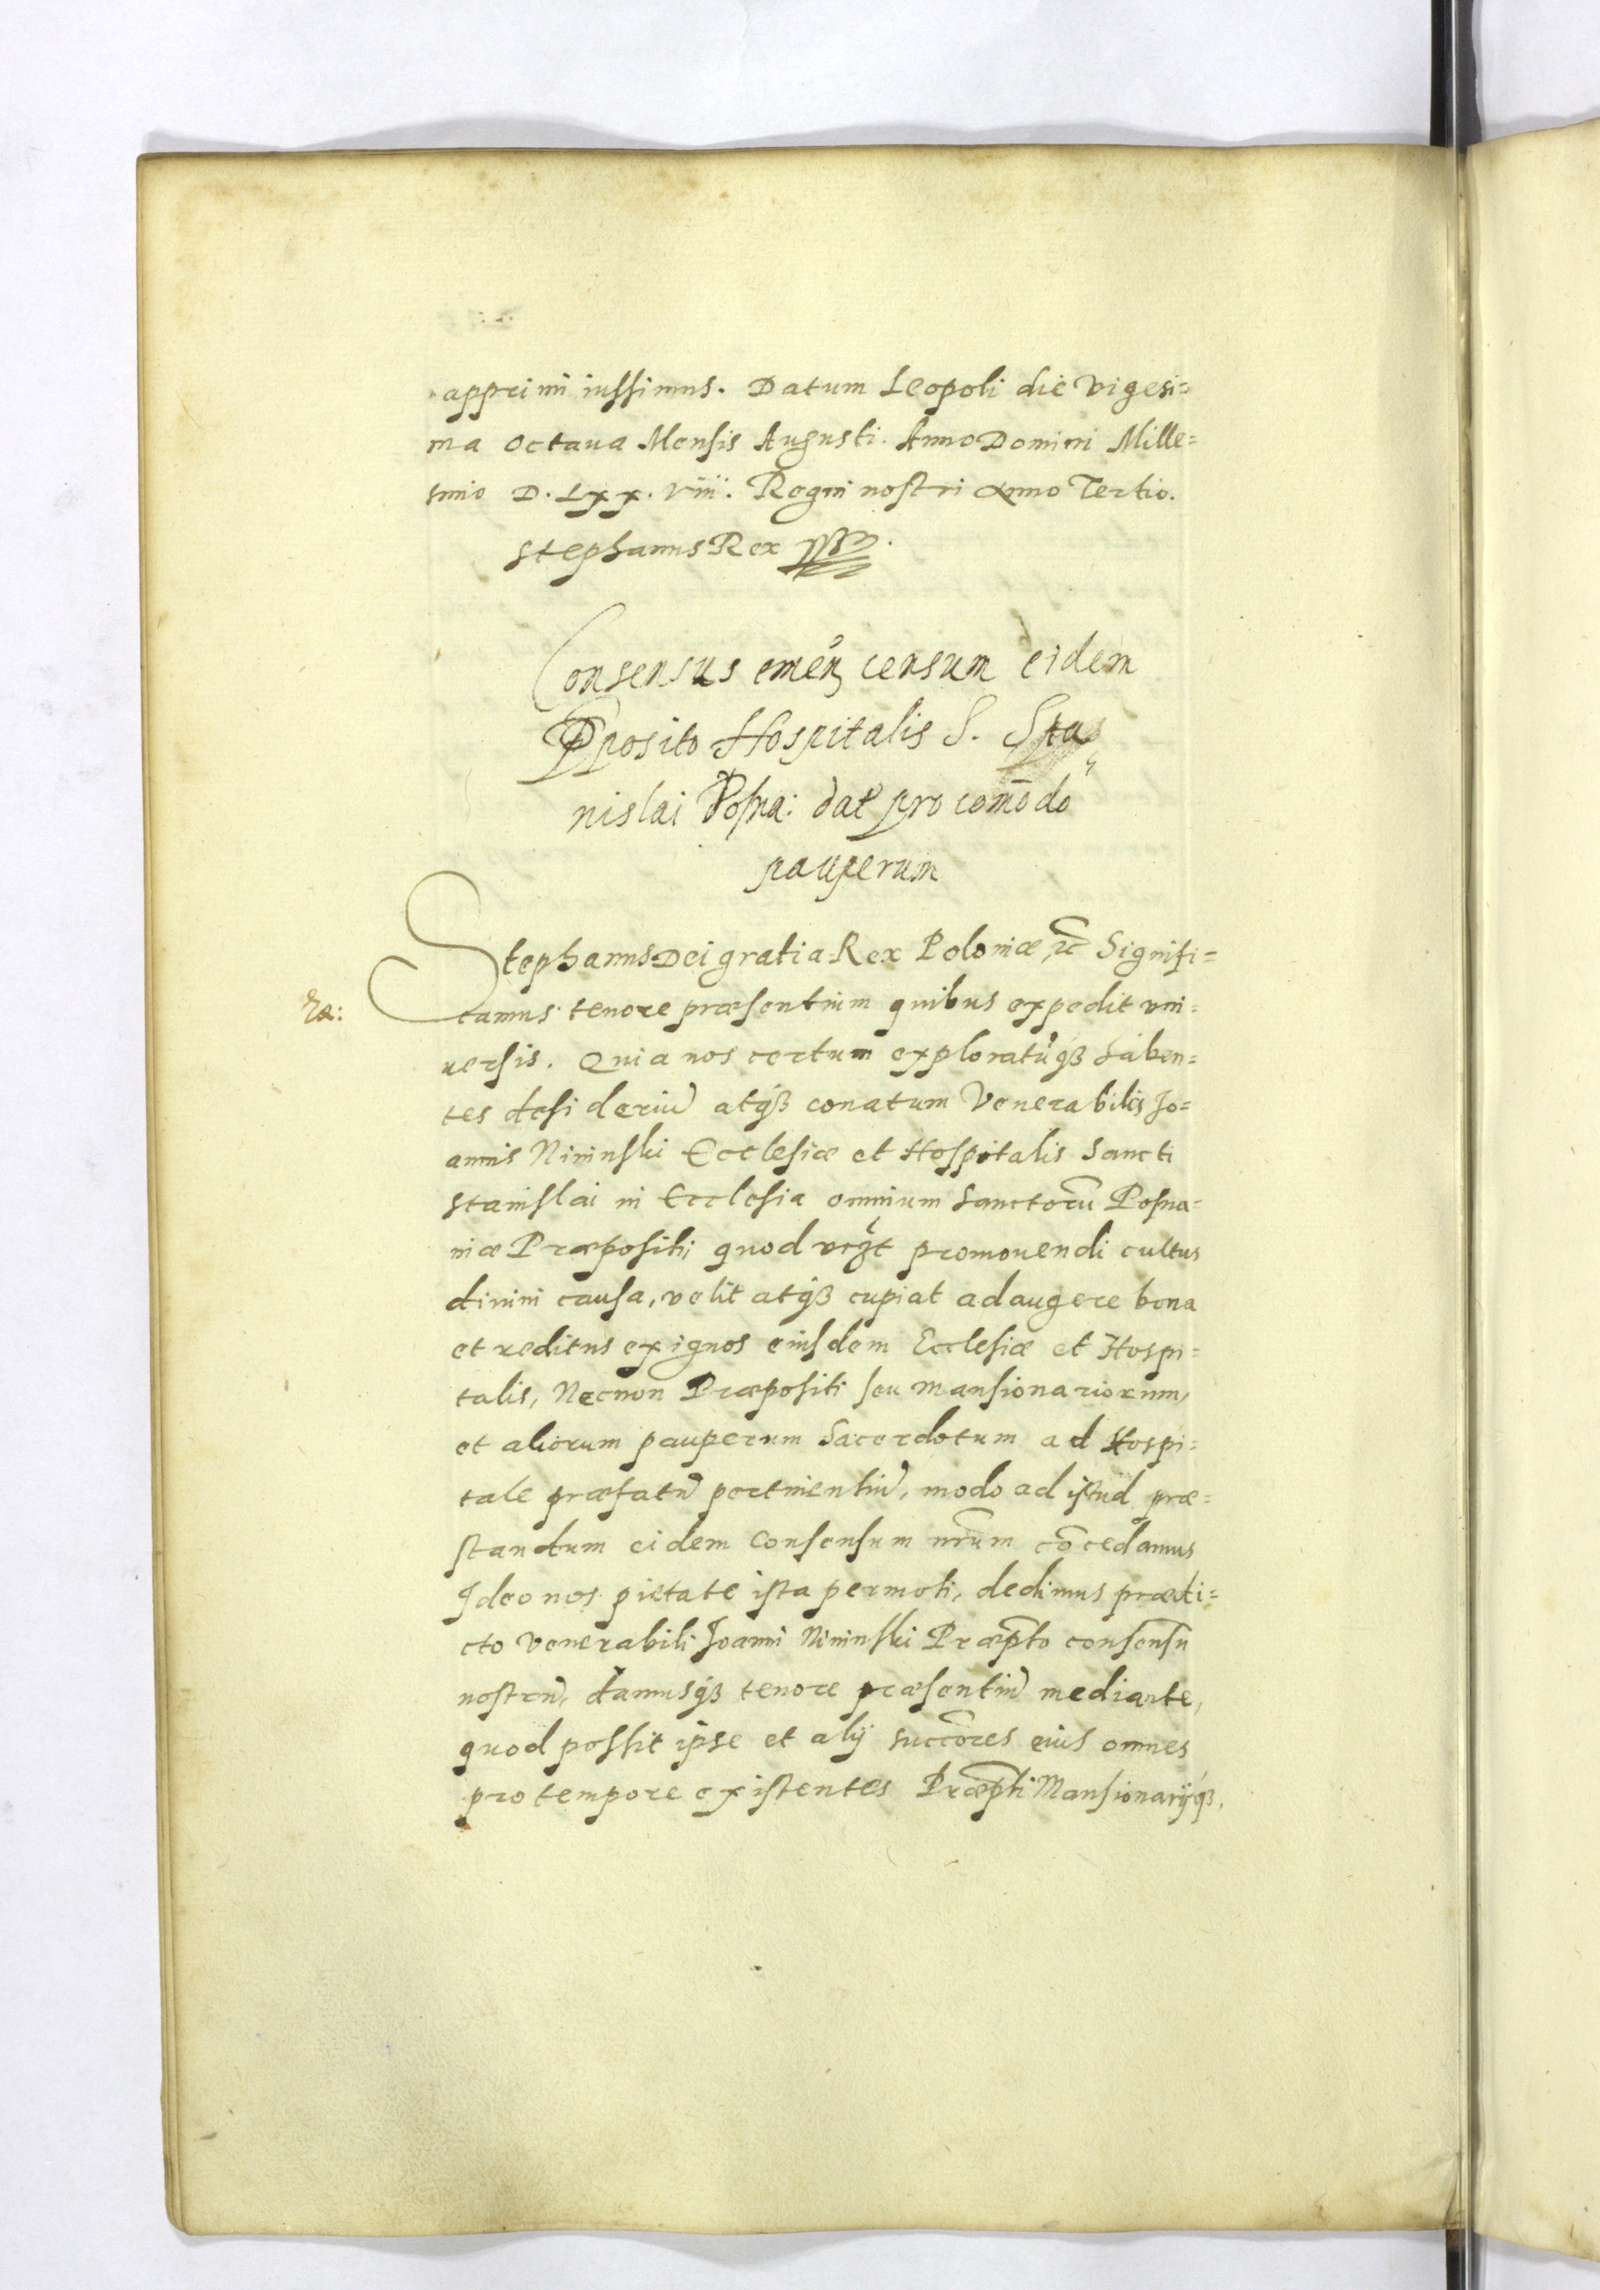 apprimi iussimus. Datum Leopoli die Vigesi=
ma Octaua Mensis Augusti. Anno Domini Mille=
simo D. Lxx. viii. Regni nostri Anno Tertio.
Stephanus Rex
Consensus emēn censum eidem
Pposito Hospitalis S. Sta
nislai Posna: dat pro com̄odo
pauperum
Stephanus Dei gratia Rex Poloniæ, &c Signifi=
camus tenore præsentium quibus expedit vni=
uersis. Quia nos certum exploratūq3 haben=
tes desideriū atq3 conatum Venerabilis Jo=
annis Nininski Ecclesiæ et Hospitalis Sancti
Stanislai in Ecclesia omnium Sanctorū Posna=
niæ Præpositi, quod promouendi cultus
diuini causa, velit atq3 cupiat adaugere bona
et reditus exiguos eiusdem Ecclesiæ et Hospi=
talis, Necnon Præpositi seu Mansionariorum,
et aliorum pauperum Sacerdotum ad Hospi=
tale præfatū pertinentiū, modo ad istud præ=
standum eidem Consensum nr̄um cōcedamus
Ideo nos pietate ista permoti, dedimus prædi=
cto Venerabili Joanni Nininski Præpto consensū
nostrū, damusq3 tenore præsentiū mediante,
quod possit ipse et alij succ̄ores eius omnes
pro tempore existentes Præpti Mansionarijq3,